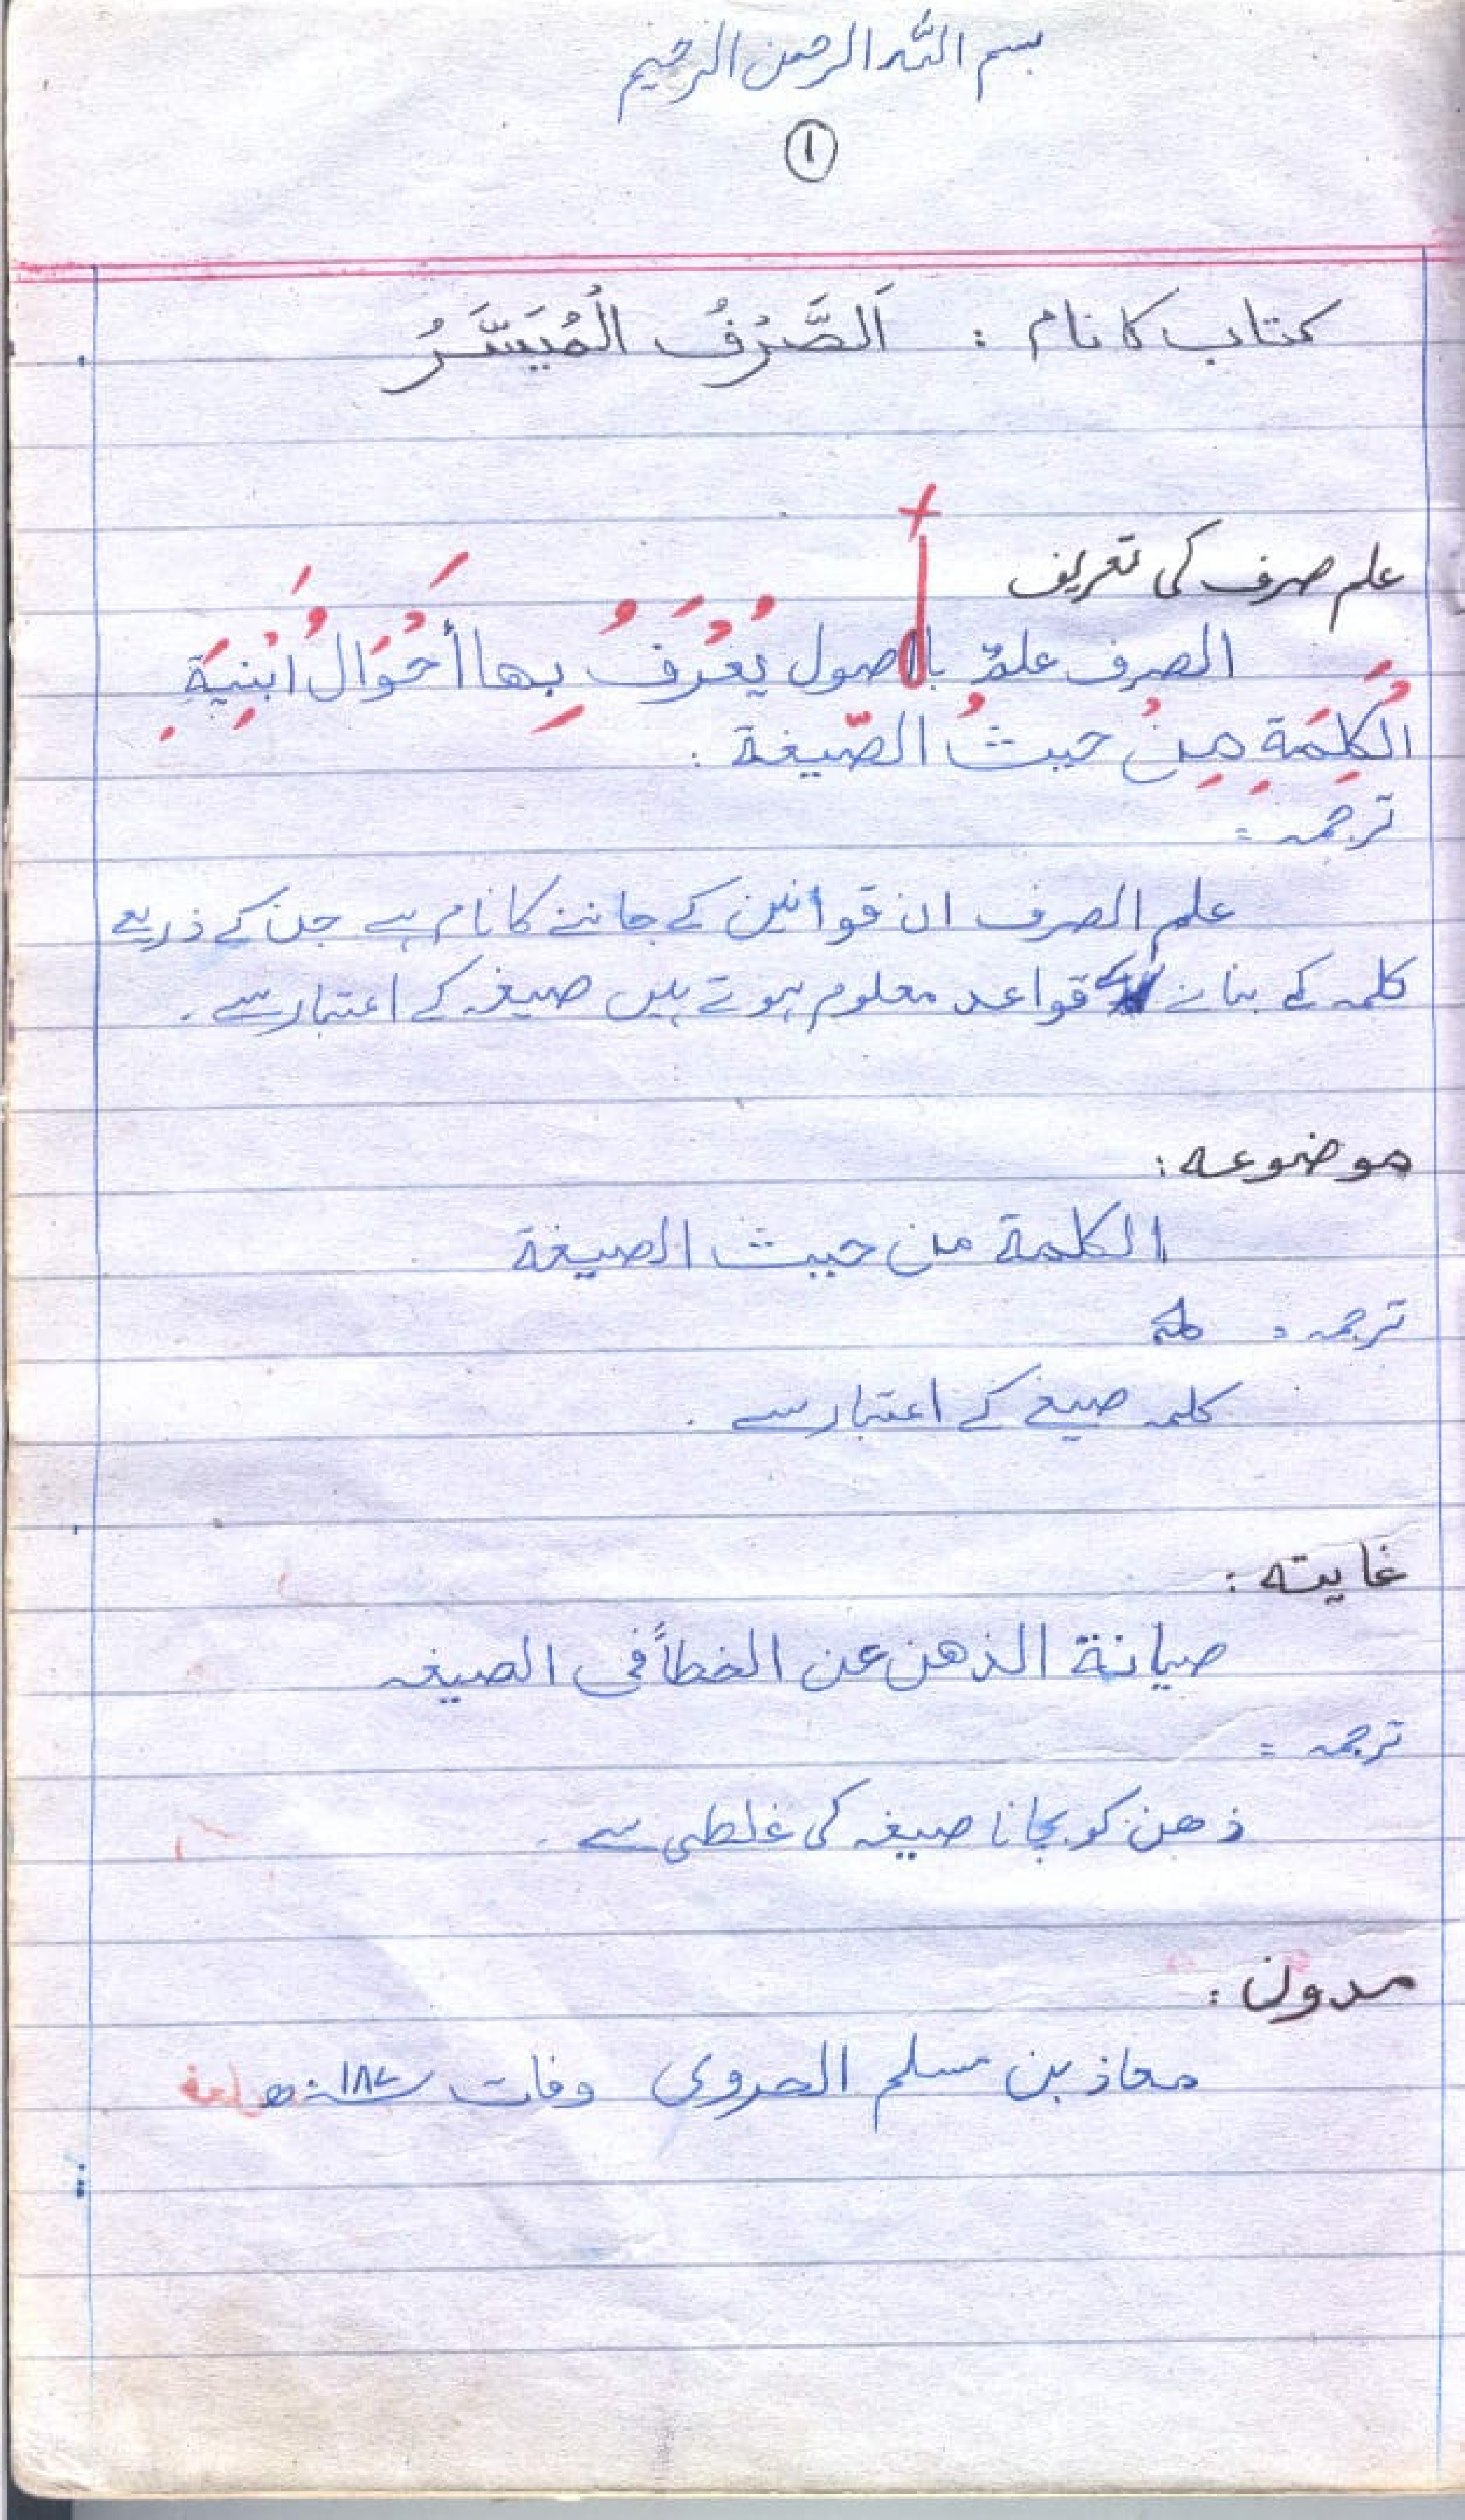 بسم اللہ الرحمن الرحیم
۱
کتاب کا نام : اَلصَّرْفُ الْمُیَسَّرُ
علم صرف کی تعریف
الصرف علمٌ باصول یُعْرَفُ بِها أَحْوَالُ اَبْنِیَةِ
الْکَلِمَةِ مِنْ حیثُ الصّیغة .
ترجمہ =
علم الصرف ان قوانین کے جاننے کا نام ہے جن کے ذریعے
کلمہ کے بنانے کے قواعد معلوم ہوتے ہیں صیغہ کے اعتبار سے ۔
موضوعه :
الکلمة من حیث الصیغة
ترجمہ =
کلمہ صیغے کے اعتبار سے .
غایته :
صیانة الذھن عن الخطأً فی الصیغہ
ترجمہ =
ذھن کو بچانا صیغہ کی غلطی سے .
مدون :
معاذ بن مسلم الھروی وفات ۱۸۷ھ